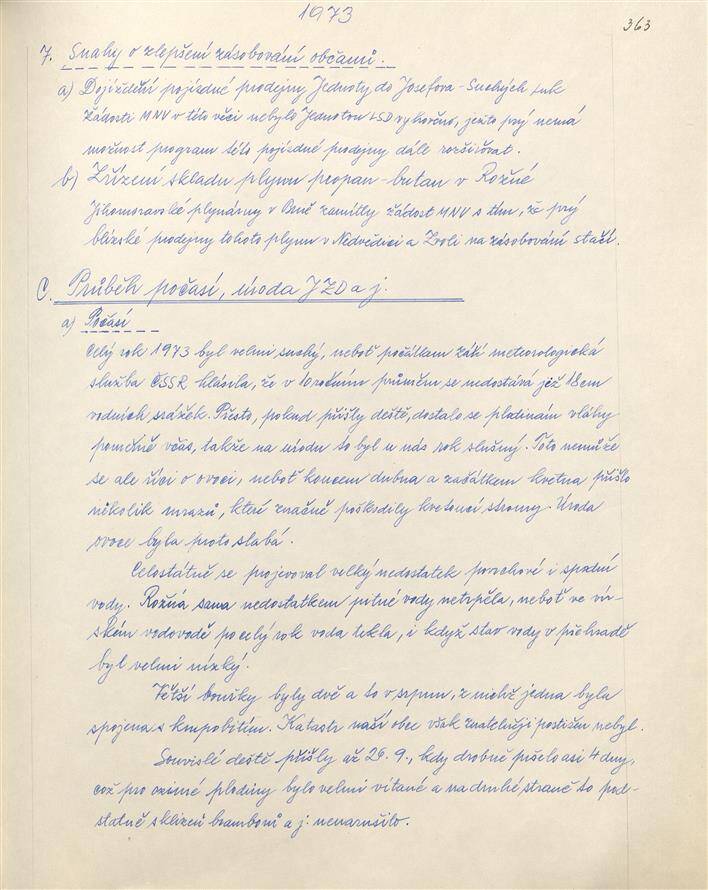 1973
363
7. Snahy o zlepšení zásobování občanů.
a) Dojíždění pojízdné prodejny Jednoty do Josefova - Suchých luk
Žádosti MNV v této věci nebylo Jednotou LSD vyhověno, ježto prý nemá
možnost program této pojízdné prodejny dále rozšiřovat.
b) Zřízení skladu plynu propan-butan v Rožné
Jihomoravské plynárny v Brně zamítly žádost MNV s tím, že prý
blízské prodejny tohoto plynu v Nedvědici a Zvoli na zásobování stačí.
C. Průběh počasí, úroda JZD a j.
a) Počasí
Celý rok 1973 byl velmi suchý, neboť počátkem září meteorologická
služba ČSSR hlásila, že v 10 ročním průměru se nedostává již 18 cm
vodních srážek. Přesto, pokud přišly deště, dostalo se plodinám vláhy
poměrně včas, takže na úrodu to byl u nás rok slušný. Toto nemůže
se ale říci o ovoci, neboť koncem dubna a začátkem května přišlo
několik mrazů, které značně poškodily kvetoucí stromy. Úroda
ovoce byla proto slabá.
Celostátně se projevoval velký nedostatek povrchové i spodní
vody. Rožná sama nedostatkem pitné vody netrpěla, neboť ve vír-
ském vodovodě po celý rok voda tekla, i když stav vody v přehradě
byl velmi nízký.
Větší bouřky byly dvě a to v srpnu, z nichž jedna byla
spojena s krupobitím. Katastr naší obce však znatelněji postižen nebyl.
Souvislé deště přišly až 26. 9., kdy drobně pršelo asi 4 dny,
což pro ozimé plodiny bylo velmi vítané a na druhé straně to pod-
statně sklizeň bramborů a j. nenarušilo.